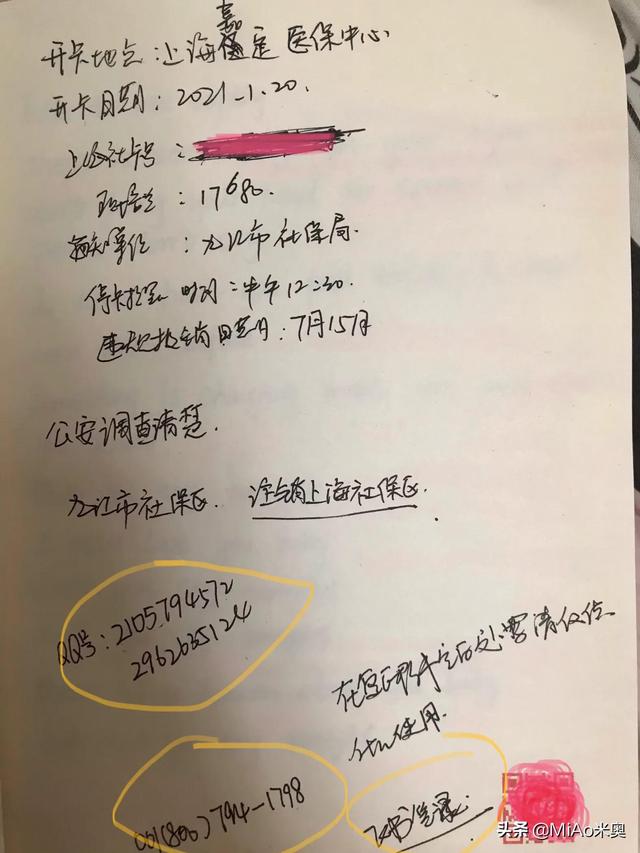 开卡地点:上海嘉定医保中心
开卡日期:2021.1.20.
上海社卡号:
:17680.
通知单位:九江市社保局.
停卡 时间:中午12:30.
违规报销日期:7月15日
公安调查清楚.
九江市社保区. 注销上海社保区.
QQ号:2105794572
2962635124
在 需清仅仅
使用.
001(800)794-1798
头条 @MiAo米奥